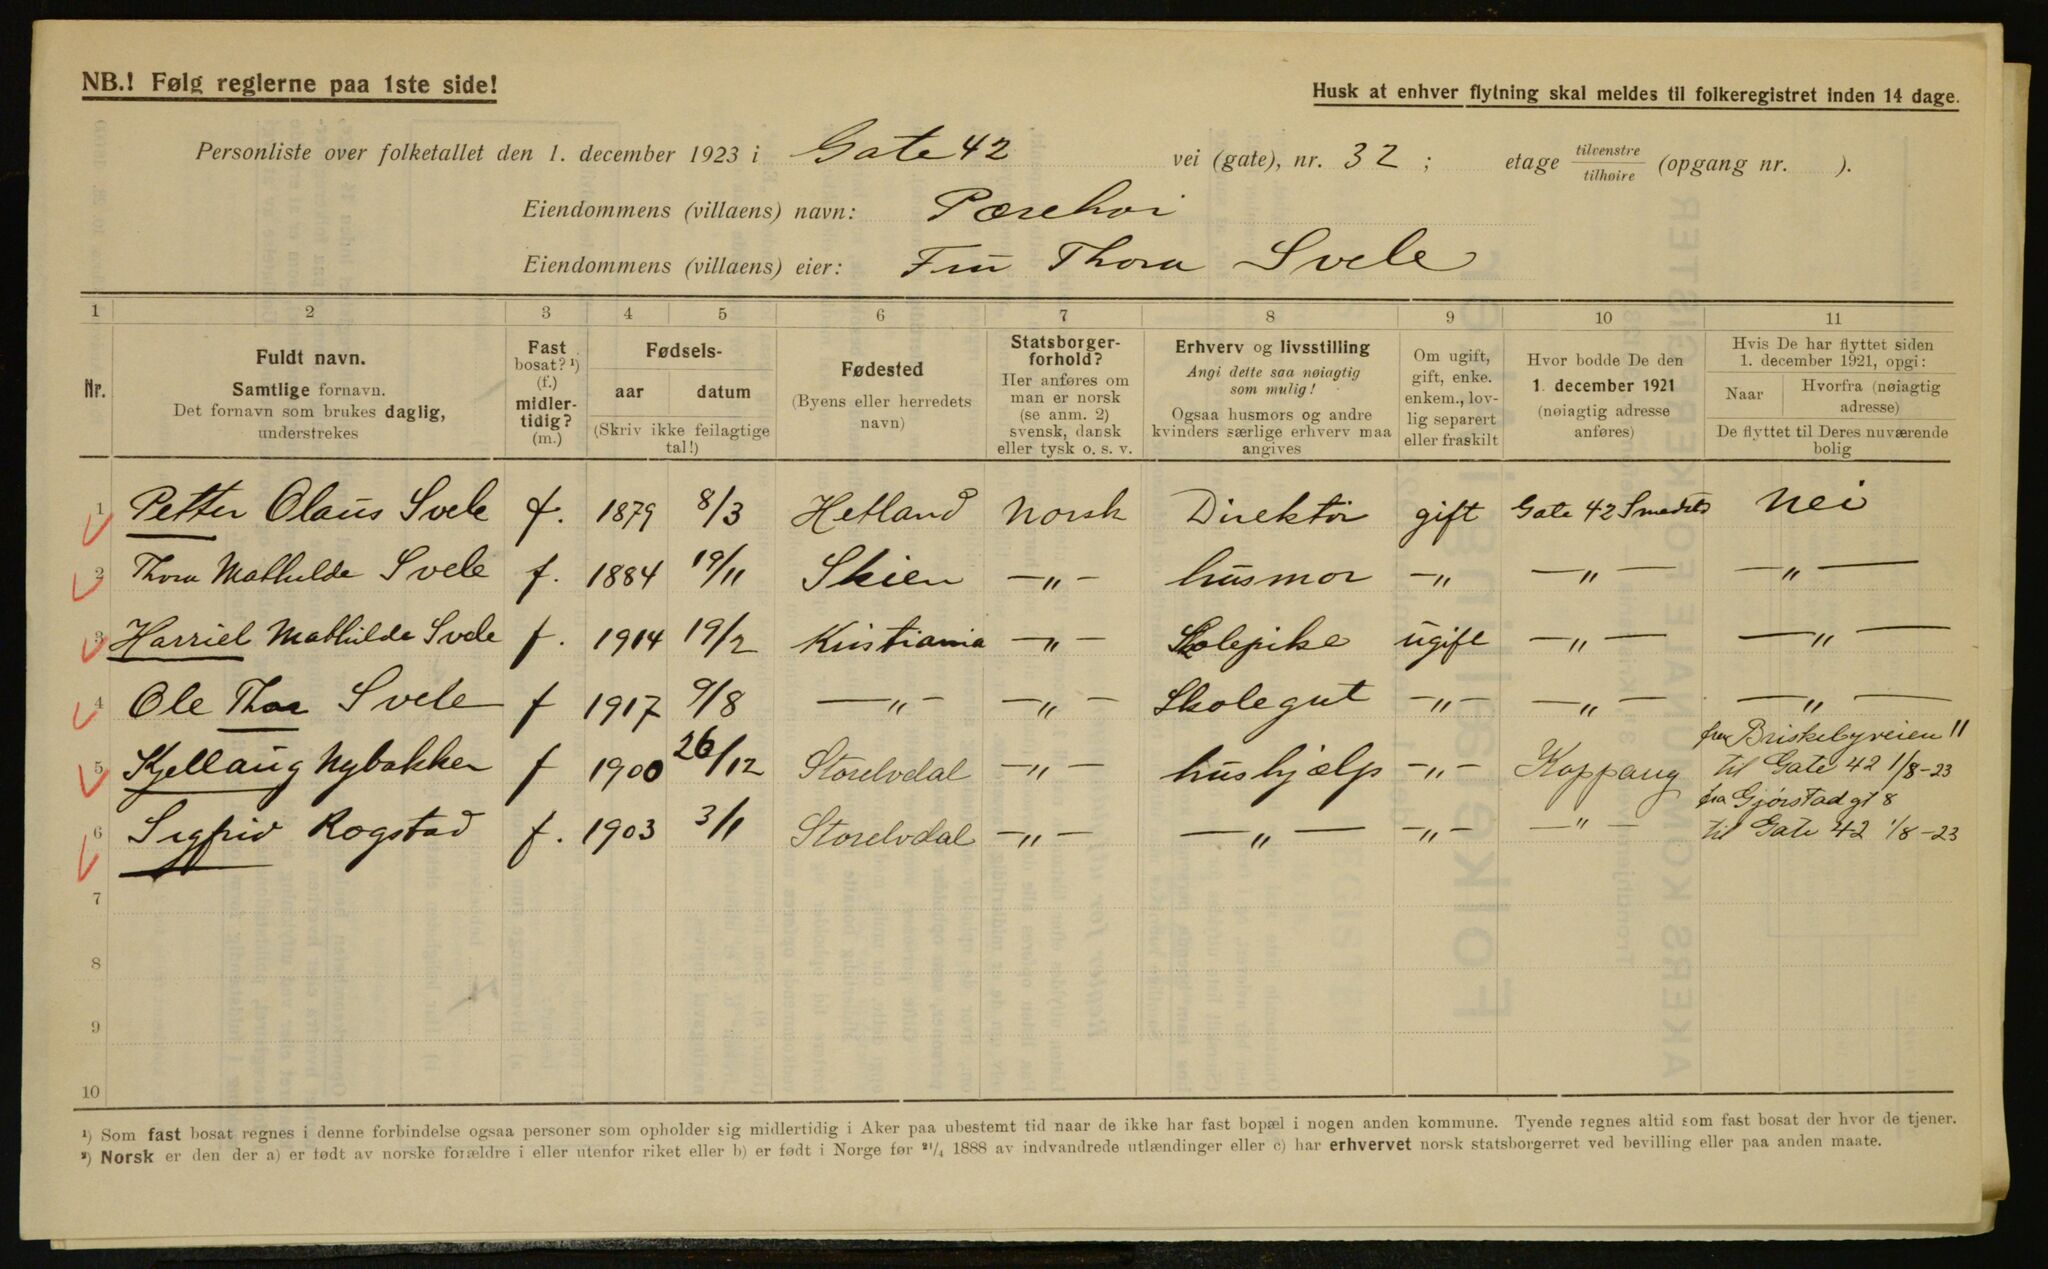 NB.! Følg reglerne paa 1ste side!
Husk at enhver flytning skal meldes til folkeregistret inden 14 dage.
Personliste over folketallet den 1. december 1923 i Gate 42 vei (gate), nr. 32 ; etage tilvenstre/tilhøire (opgang nr. ).
Eiendommens (villaens) navn:
Eiendommens (villaens) eier: Fru Thora Svele
1 2 3 4 5 6 7 8 9 10 11
Nr.
Fuldt navn.
Samtlige fornavn.
Det fornavn som brukes daglig,
understrekes
Fast
bosat? ¹)
(f.)
midler-
tidig?
(m.)
Fødsels-
aar datum
(Skriv ikke feilagtige
tal!)
Fødested
(Byens eller herredets
navn)
Statsborger-
forhold?
Her anføres om
man er norsk
(se anm. 2)
svensk, dansk
eller tysk o. s. v.
Erhverv og livsstilling
Angi dette saa nøiagtig
som mulig!
Ogsaa husmors og andre
kvinders særlige erhverv maa
angives
Om ugift,
gift, enke.
enkem., lov-
lig separert
eller fraskilt
Hvor bodde De den
1. december 1921
(nøiagtig adresse
anføres)
Hvis De har flyttet siden
1. december 1921, opgi:
Naar Hvorfra (nøiagtig
adresse)
De flyttet til Deres nuværende
bolig
1 Petter Olaus Svele f. 1879 8/3 Hetland Norsk Direktør gift Gate 42 Smedst nei
2 Thora Mathilde Svele f. 1884 19/11 Skien —„— husmor —„ —„— —„—
3 Harriet Mathilde Svele f. 1914 19/2 Kristiania —„— Skolepike ugift —„— —„—
4 Ole Thor Svele f 1917 9/8 —„— —„— Skolegut —„— —„— —„—
fra Briskebyveien 11
5 Kjellaug Nybakken f 1900 26/12 Storelvdal —„— hushjælp —„— Koppang til Gate 42 1/8-23
fra Gjørstad gt 8
6 Sigfrid Rogstad f. 1903 3/1 Storelvdal —„— —„— —„— —„— til Gate 42 1/8-23
7
8
9
10
¹) Som fast bosat regnes i denne forbindelse ogsaa personer som opholder sig midlertidig i Aker paa ubestemt tid naar de ikke har fast bopæl i nogen anden kommune. Tyende regnes altid som fast bosat der hvor de tjener.
²) Norsk er den der a) er født av norske forældre i eller utenfor riket eller b) er født i Norge før ²¹/₄ 1888 av indvandrede utlændinger eller c) har erhvervet norsk statsborgerret ved bevilling eller paa anden maate.